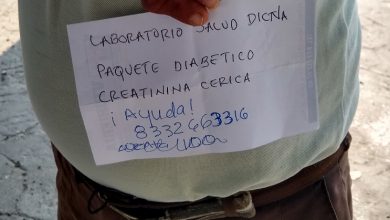 LABORATORIO SALUD DIGNA
PAQUETE DIABETICO
CREATININA CERICA
¡Ayuda!
8332663316
1100